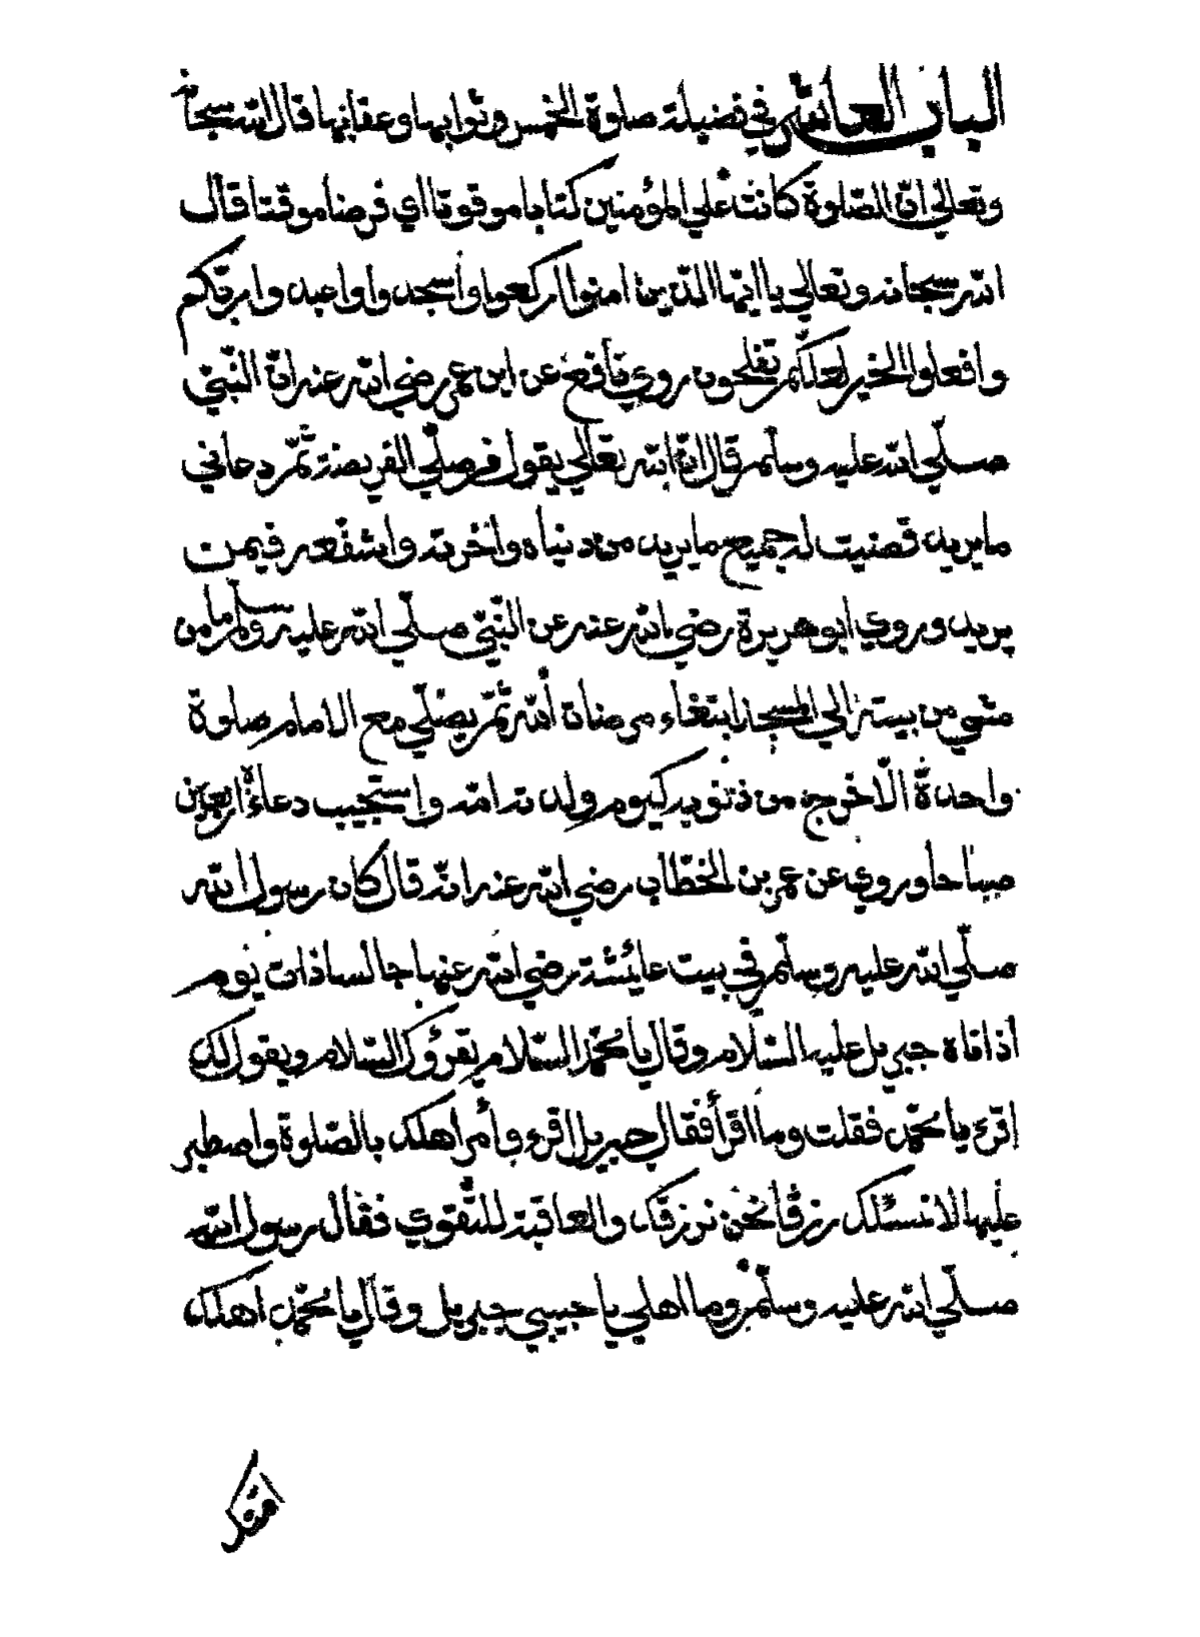 الباب العاشر في فضيلة صلوة الخمس وثوابها وعقابها قال الله سبحانه
وتعالي انّ الصّلوة كانت علي المؤمنين كتابا موقوتا اي فرضا موقتا قال
الله سبحانه وتعالي يا ايّها الّذين امنوا اركعوا وأسجدوا واعبدوا ربّكم
وافعلوا الخير لعلّكم تفلحون روي نافع عن ابن عمر رضي الله عنه انّ النّبيّ
صلّي الله عليه وسلّم قال انّ الله تعالي يقول من صلّي الفريضة ثمّ دعاني
ما يريد قضيت له جميع ما يريد من دنياه واخرته واشفّعه فيمن
يريد وروي ابو هريرة رضي الله عنه عن النّبيّ صلّي الله عليه وسلّم ما من
مشي من بيته الي المسجد ابتغاء مرضاة الله ثمّ يصلّي مع الامام صلوة
واحدة الّا خرج من ذنوبه كيوم ولدته امّه واستجيب دعاءه اربعين
صباحا وروي عن عمر بن الخطّاب رضي الله عنه انّه قال كان رسول الله
صلّي الله عليه وسلّم في بيت عائشة رضي الله عنها جالسا ذات يوم
اذا تاه جبريل عليه السّلام وقال يا محمّد السّلام يقرؤك السّلام ويقول لك
اقرء يا محمّد فقلت وما اقرأ فقال جبريل اقرء وأمر اهلك بالصّلوة واصطبر
عليها لا نسئلك رزقا نحن نرزقك والعاقبة للتّقوي فقال رسول الله
صلّي الله عليه وسلّم وما اهلي يا حبيبي جبريل وقال يا محمّد اهلك
امّتك